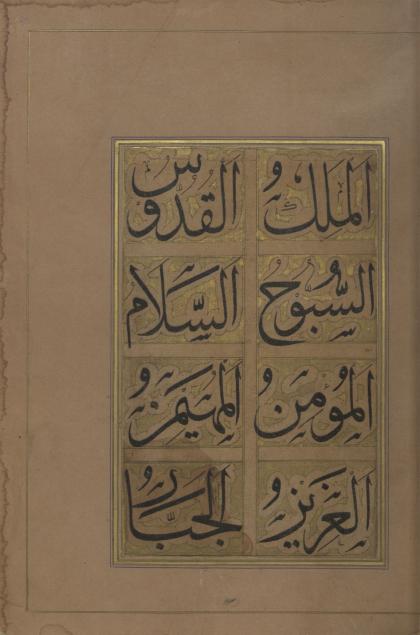 الملك القدوس
السبوح السلام
المؤمن المهيمن
العزيز الجبار